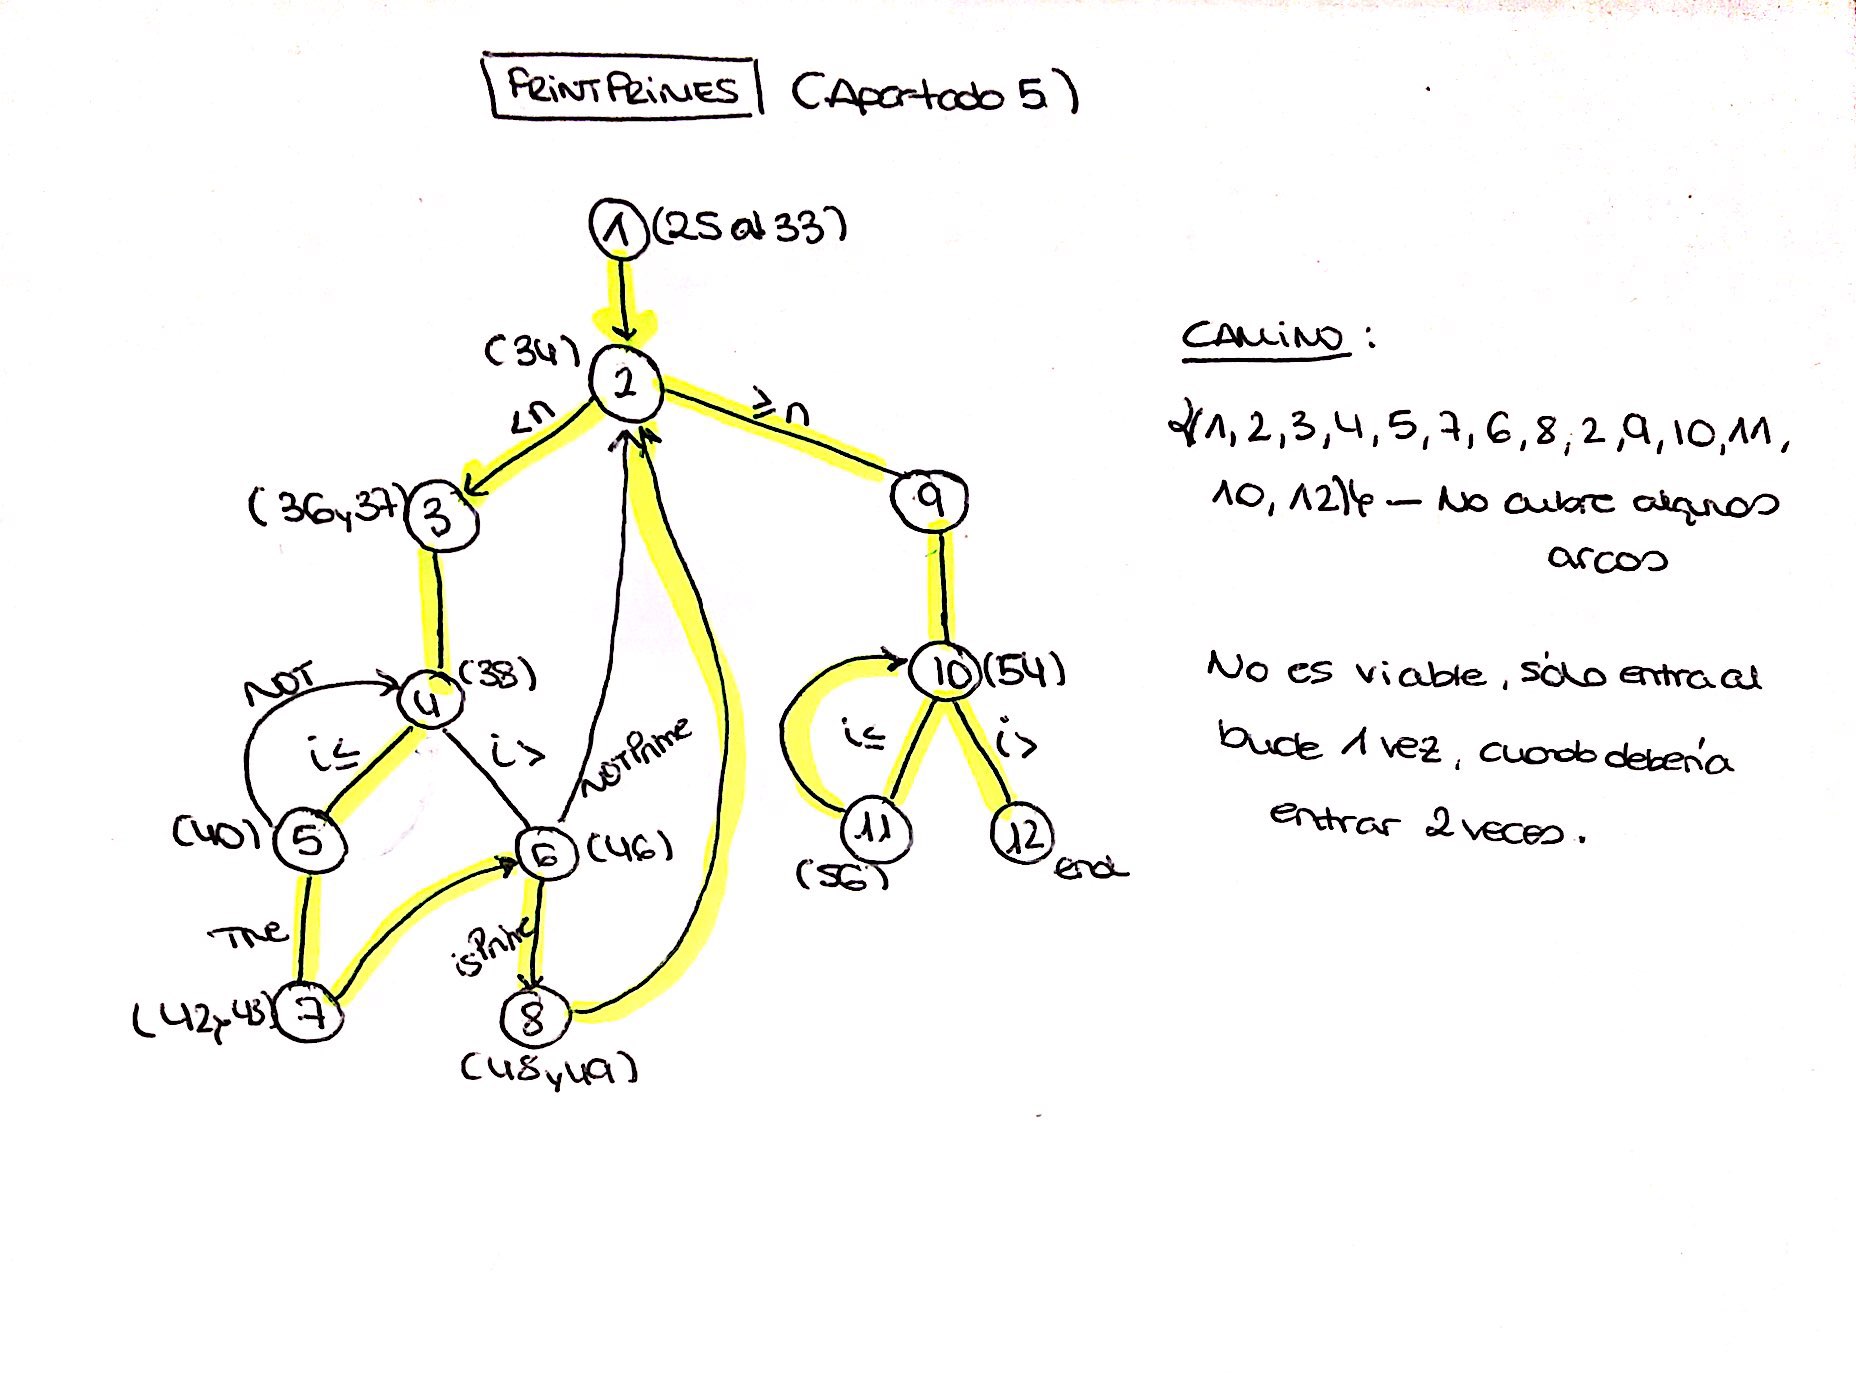 PRINTPRIMES (Apartado 5)
1 (25 al 33)
(34)
2
<n
≥n
(36y37) 3
9
NOT
4 (38)
10 (54)
i≤
i>
i≤
i>
NOTPrime
(40) 5
6 (46)
11
12
end
(56)
True
isPrime
(42y43) 7
8
(48y49)
CAMINO:
{1, 2, 3, 4, 5, 7, 6, 8, 2, 9, 10, 11,
10, 12} — No cubre algunos
arcos
No es viable, sólo entra al
bucle 1 vez, cuando debería
entrar 2 veces.